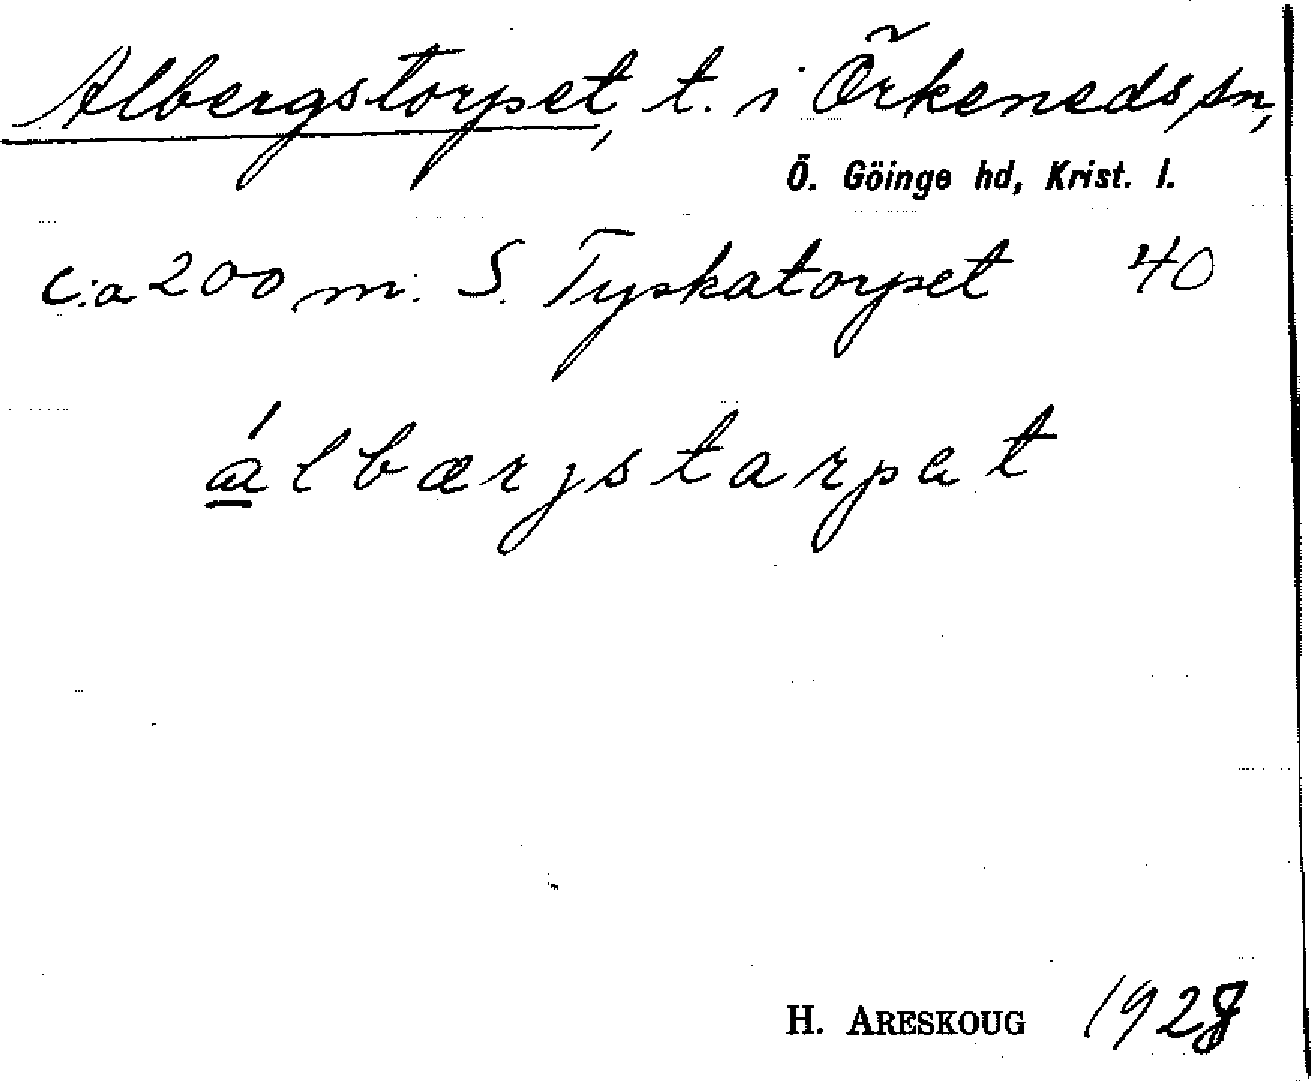 Albergstorpet, t. i Örkeneds sn,
Ö. Göinge hd, Krist. l.
c:a 200 m. S. Tyskatorpet 40
á̱lbærjstarpat
H. ARESKOUG 1928